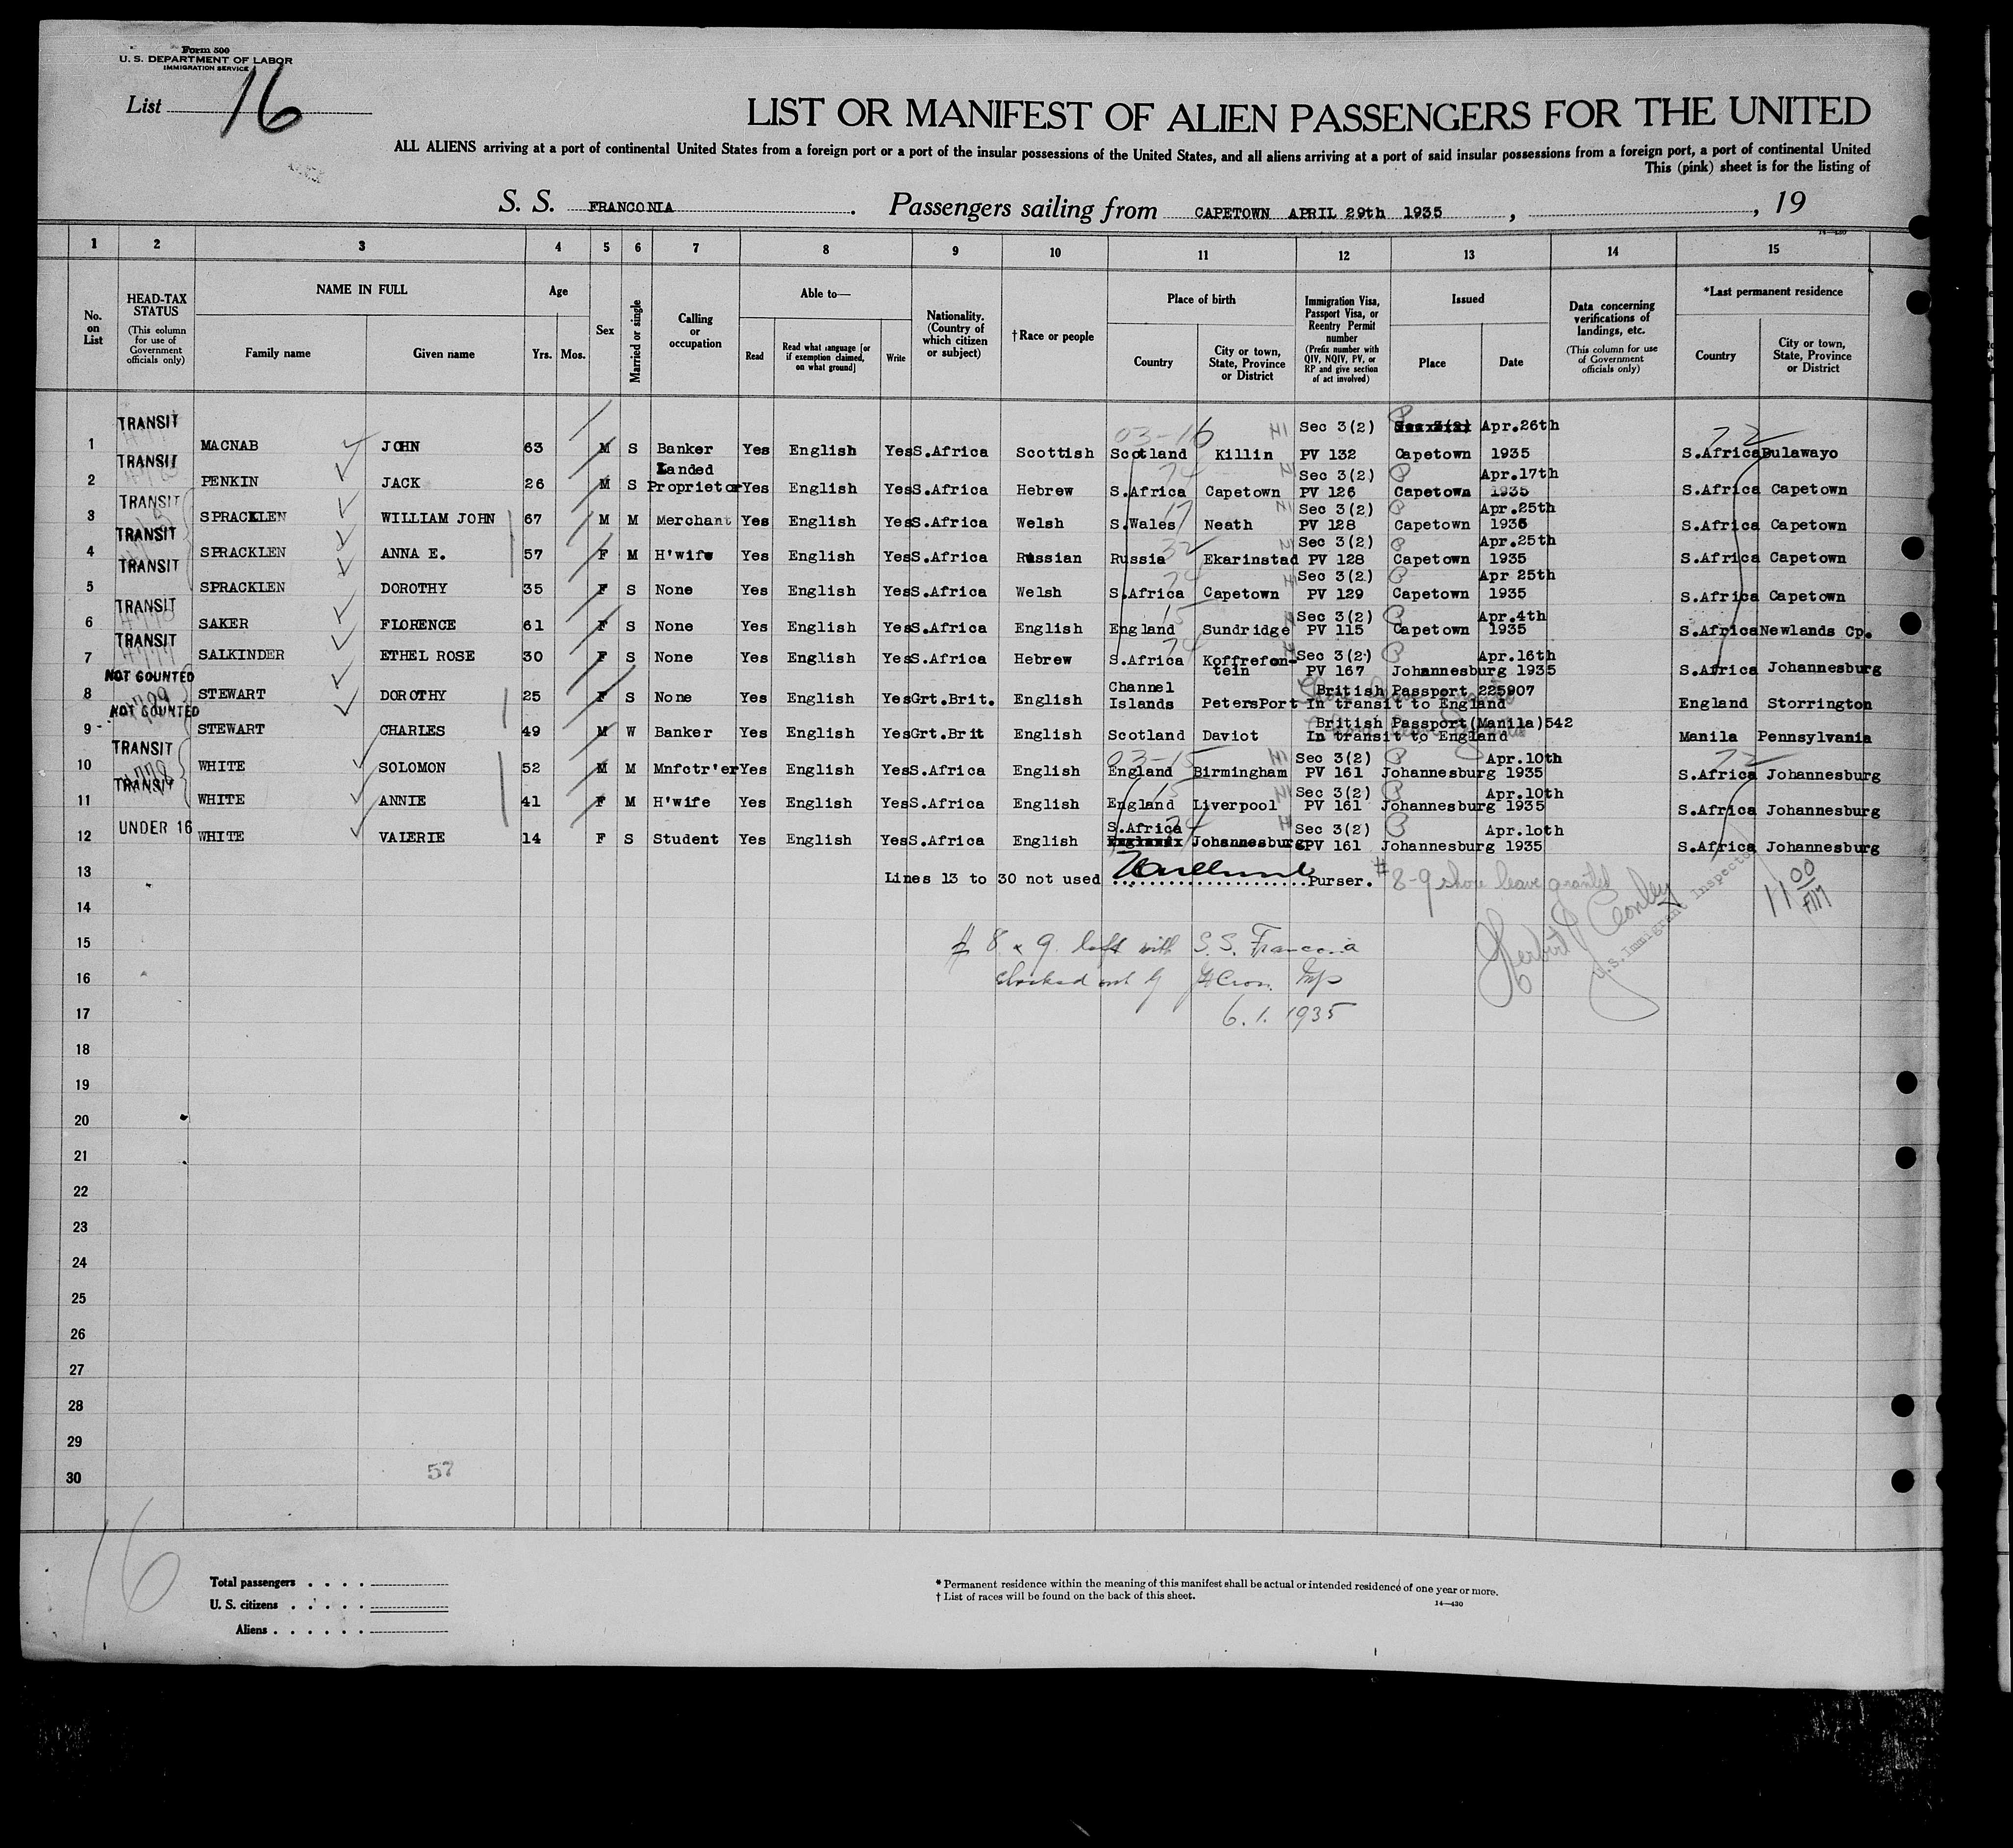 Form 500
U. S. DEPARTMENT OF LABOR
IMMIGRATION SERVICE
List 16
LIST OR MANIFEST OF ALIEN PASSENGERS FOR THE UNITED
ALL ALIENS arriving at a port of continental United States from a foreign port or a port of the insular possessions of the United States, and all aliens arriving at a port of said insular possessions from a foreign port, a port of continental United
This (pink) sheet is for the listing of
S. S. FRANCONIA. Passengers sailing from CAPETOWN APRIL 29th 1935, , 19
14—430
1 2 3 4 5 6 7 8 9 10 11 12 13 14 15
No. on List
HEAD-TAX STATUS (This column for use of Government officials only)
NAME IN FULL
Family name Given name
Age
Yrs. Mos.
Sex
Married or single
Calling or occupation
Able to—
Read
Read what language [or if exemption claimed, on what ground]
Write
Nationality. (Country of which citizen or subject)
†Race or people
Place of birth
Country
City or town, State, Province or District
Immigration Visa, Passport Visa, or Reentry Permit number (Prefix number with QIV, NQIV, PV, or RP and give section of act involved)
Issued
Place Date
Data concerning verifications of landings, etc. (This column for use of Government officials only)
*Last permanent residence
Country
City or town, State, Province or District
TRANSIT 03-16 Sec 3(2) Apr.26th 72
1 MACNAB JOHN 63 M S Banker Yes English Yes S.Africa Scottish Scotland Killin PV 132 Capetown 1935 S.Africa Bulawayo
TRANSIT Landed 74 Sec 3(2) Apr.17th
2 PENKIN JACK 26 M S Proprietor Yes English Yes S.Africa Hebrew S.Africa Capetown PV 126 Capetown 1935 S.Africa Capetown
TRANSIT 17 Sec 3(2) Apr.25th
3 SPRACKLEN WILLIAM JOHN 67 M M Merchant Yes English Yes S.Africa Welsh S.Wales Neath PV 128 Capetown 1935 S.Africa Capetown
TRANSIT 32 Sec 3(2) Apr.25th
4 SPRACKLEN ANNA E. 57 F M H'wife Yes English Yes S.Africa Russian Russia Ekarinstad PV 128 Capetown 1935 S.Africa Capetown
TRANSIT 74 Sec 3(2) Apr 25th
5 SPRACKLEN DOROTHY 35 F S None Yes English Yes S.Africa Welsh S.Africa Capetown PV 129 Capetown 1935 S.Africa Capetown
TRANSIT 15 Sec 3(2) Apr.4th
6 SAKER FLORENCE 61 F S None Yes English Yes S.Africa English England Sundridge PV 115 Capetown 1935 S.Africa Newlands Cp.
TRANSIT 74 Sec 3(2) Apr.16th
7 SALKINDER ETHEL ROSE 30 F S None Yes English Yes S.Africa Hebrew S.Africa Koffrefon-tein PV 167 Johannesburg 1935 S.Africa Johannesburg
NOT COUNTED Channel British Passport 225907
8 STEWART DOROTHY 25 F S None Yes English Yes Grt.Brit. English Islands PetersPort In transit to England England Storrington
NOT COUNTED British Passport(Manila)542
9 STEWART CHARLES 49 M W Banker Yes English Yes Grt.Brit English Scotland Daviot In transit to England Manila Pennsylvania
TRANSIT 03-15 Sec 3(2) Apr.10th 72
10 WHITE SOLOMON 52 M M Mnfctr'er Yes English Yes S.Africa English England Birmingham PV 161 Johannesburg 1935 S.Africa Johannesburg
TRANSIT 15 Sec 3(2) Apr.10th
11 WHITE ANNIE 41 F M H'wife Yes English Yes S.Africa English England Liverpool PV 161 Johannesburg 1935 S.Africa Johannesburg
UNDER 16 S.Africa 74 Sec 3(2) Apr.1oth
12 WHITE VALERIE 14 F S Student Yes English Yes S.Africa English England Johannesburg PV 161 Johannesburg 1935 S.Africa Johannesburg
13 Lines 13 to 30 not used Purser. # 8-9 shore leave granted
14 11 00 AM
15 # 8 & 9 left with S.S. Franconia
U.S. Immigrant Inspector
16 checked out by
17 6. 1. 1935
18
19
20
21
22
23
24
25
26
27
28
29
30 57
16
Total passengers
U. S. citizens
Aliens
* Permanent residence within the meaning of this manifest shall be actual or intended residence of one year or more.
† List of races will be found on the back of this sheet.
14—430